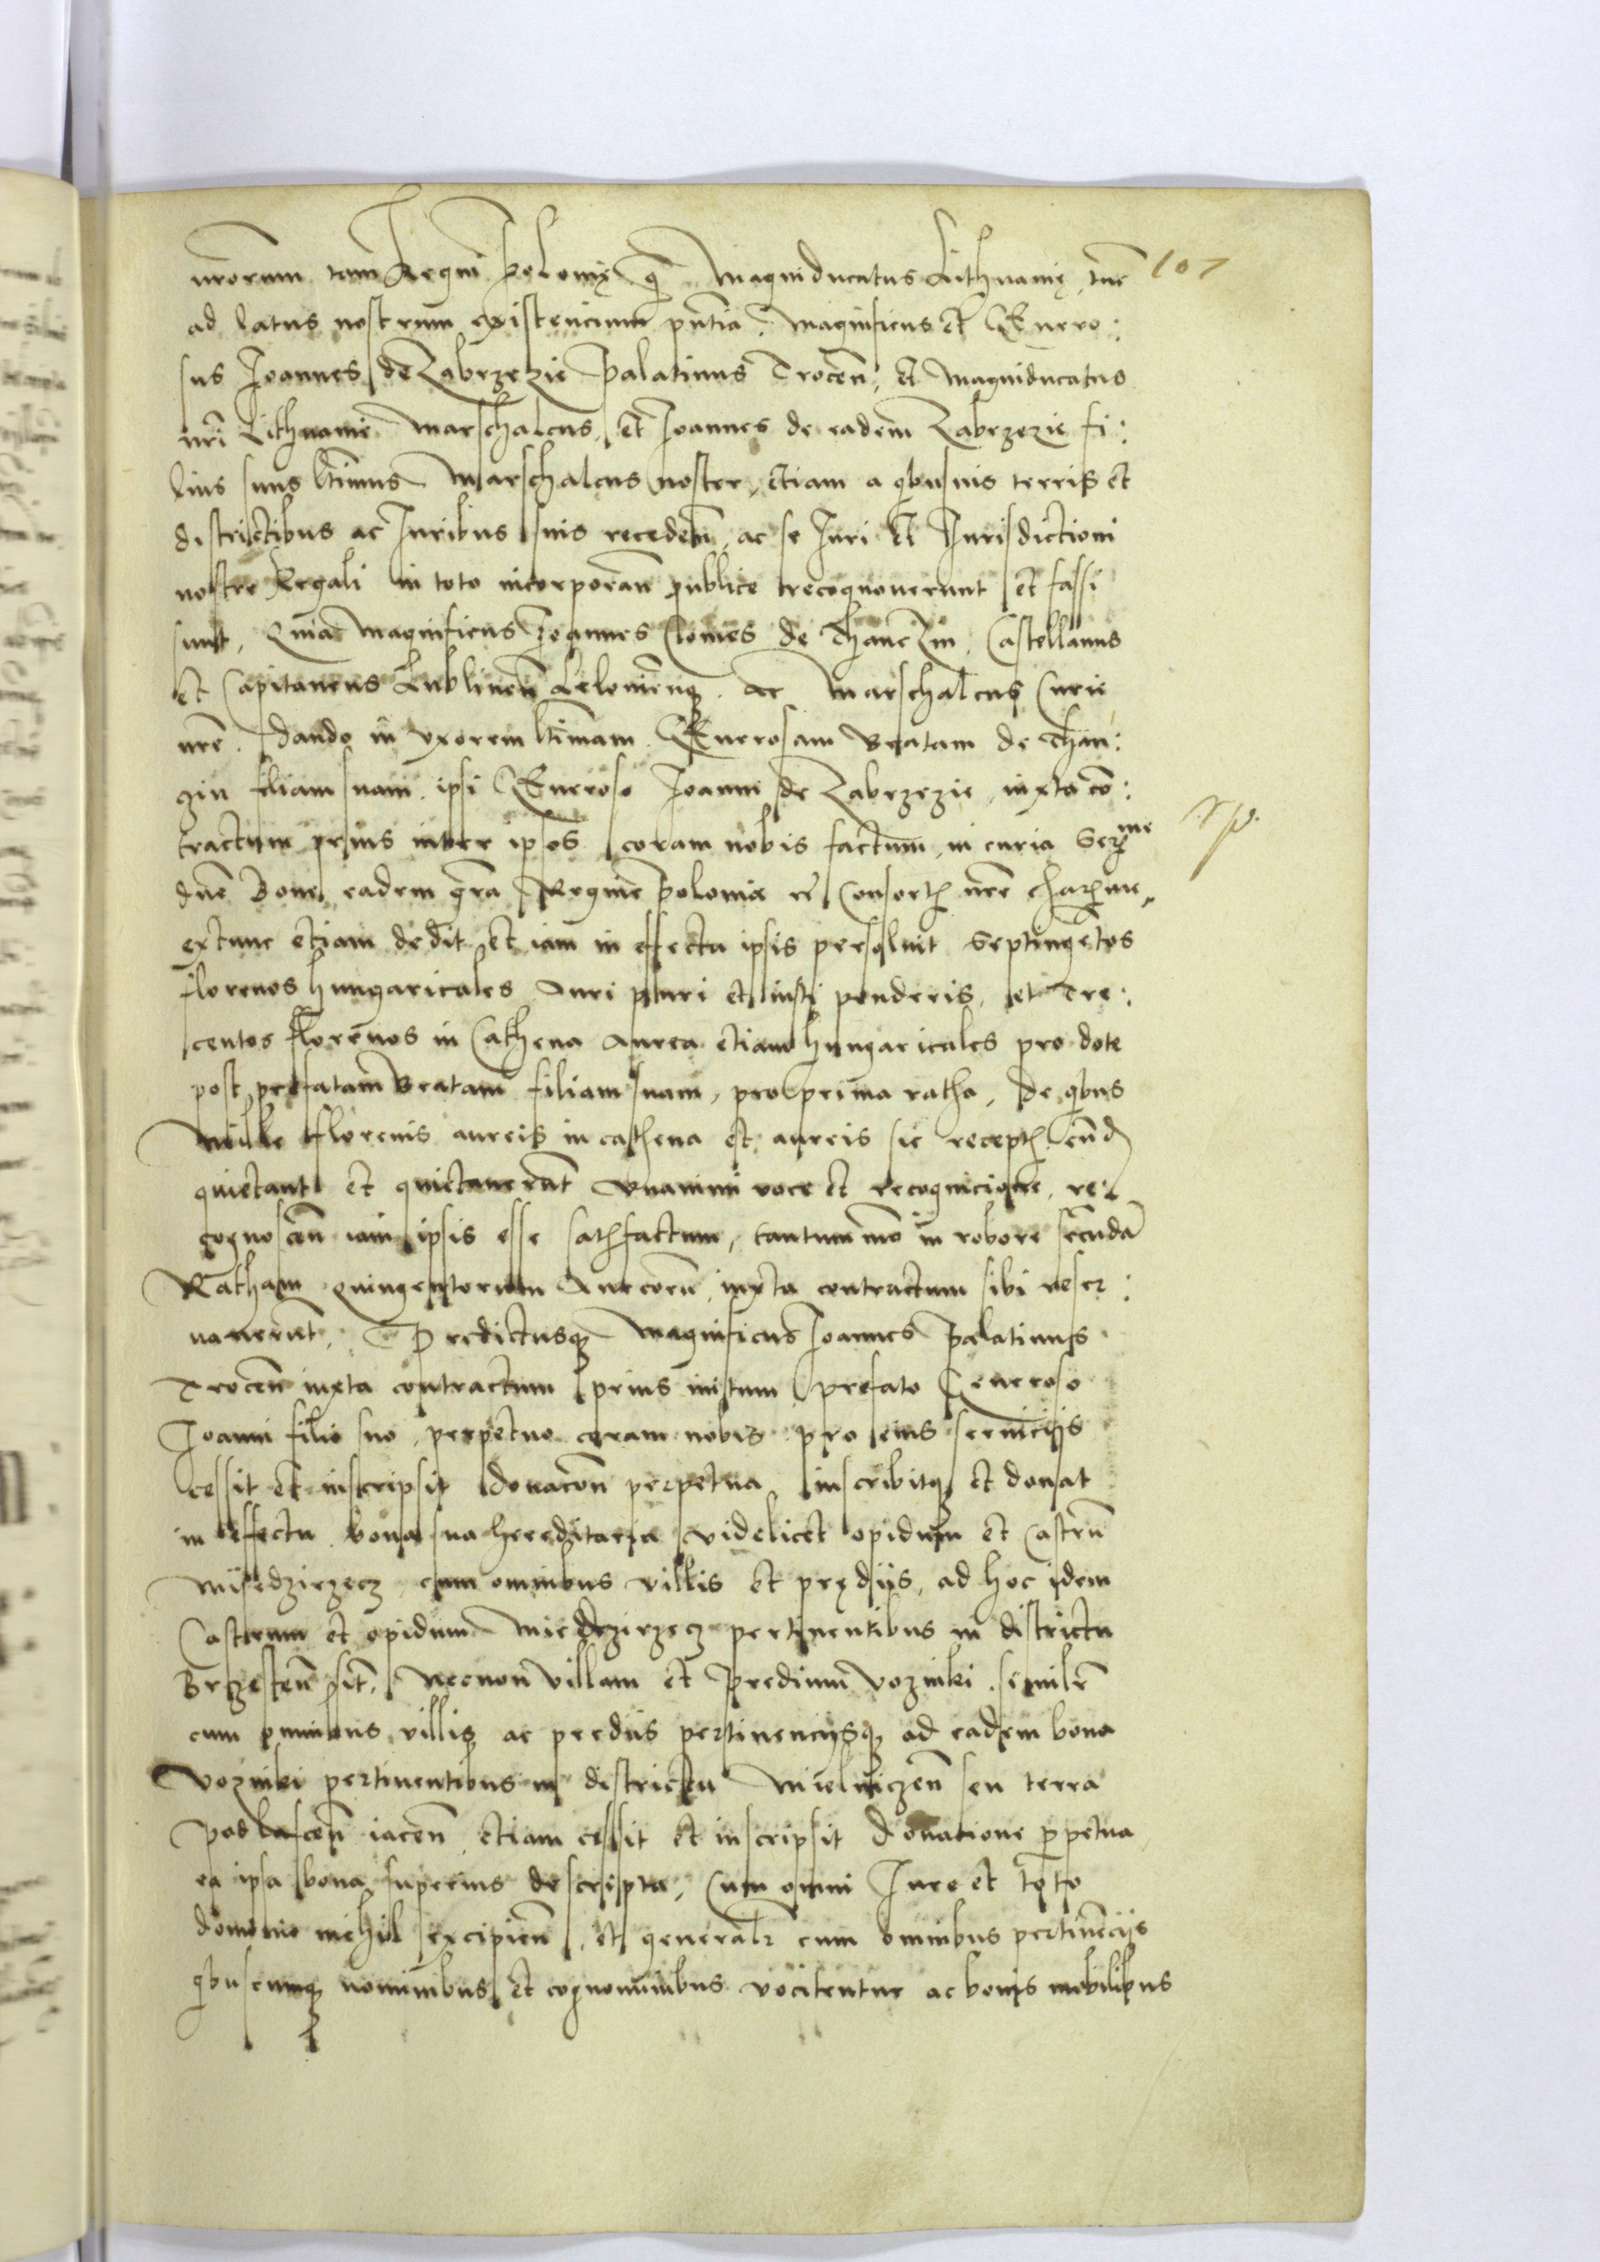 nrorum tam Regni Polonię q̃ Magniducatus Lithuanię, tũc 107
ad latus nostrum existencium pñtia. Magnificus et Genero:
sus Joannes de Zabrzezie Palatinus Trocen̄, et Magniducatus
nri Lithuanie Marschalcus, et Joannes de eadem Zabrzezie fi:
lius suus ltimus Marschalcus noster, etiam a qbusuis terris et
districtibus ac Juribus suis receden̄, ac se Juri et Jurisdictioni
nostre Regali in toto incorporan̄ publice recognouerunt et fassi
sunt, Quia Magnificus Joannes Comes de Thanczin, Castellanus
et Capitaneus Lublinen̄ Lelouienq̃. Ac Marschalcus Curie
nrē. dando in vxorem ltimam. Generosam Beatam de Than:
czin filiam suam. ipsi Generoso Joanni de Zabrzezie, iuxta cō:
tractum prius inter ipsos coram nobis factum, in curia Serme
dnē Bone, eadem gr̄a Regine Polonie rc̄ Consortis nrē charme,
extunc etiam dedit et iam in effectu ipsis persoluit Septingētos
florenos hungaricales Auri puri et iusti ponderis, et Tre:
centos florenos in Cathena Aurea etiam hungaricales pro dote
post prefatam Beatam filiam suam, pro prima ratha, de qbus
Mille florenis aureis in cathena et aureis sic receptis eund
quietant et quietauerunt Vnanimi voce et recognicione, re:
cognoscen̄ iam ipsis esse satisfactum, tantummō in robore secundā
Ratham quingentorum Aureorū, iuxta contractum sibi reser:
uauerunt. Predictusq̃ Magnificus Joannes Palatinus
Trocen̄ iuxta contractum prius initum prefato Generoso
Joanni filio suo, perpetuo coram nobis pro eius seruicijs
cessit et inscripsit donacōn perpetua inscribitq̃ et donat
in effectu bona sua hereditaria videlicet opidum et Castrū
Miedzirzecz cum omnibus villis et prędijs, ad hoc idem
Castrum et opidum Miedzirzecz pertinentibus in districtu
Brzesten̄ sit̄, Necnon villam et Predium Voziniki similr̄
cum omnibus villis ac prediis pertinencijsq̃ ad eadem bona
Voziniki pertinentibus in districtu Mielniczen̄ seu terra
Podlascen̄ iacen̄ etiam cessit et inscripsit Donatione ꝑpetua
ea ipsa bona superius descripta, Cum omni Jure et toto
dominio nichil excipien̄, et generalr̄ cum omnibus pertinēcijs
qbuscumq̃ nominibus et cognominibus vocitentur ac bonis mobilibus